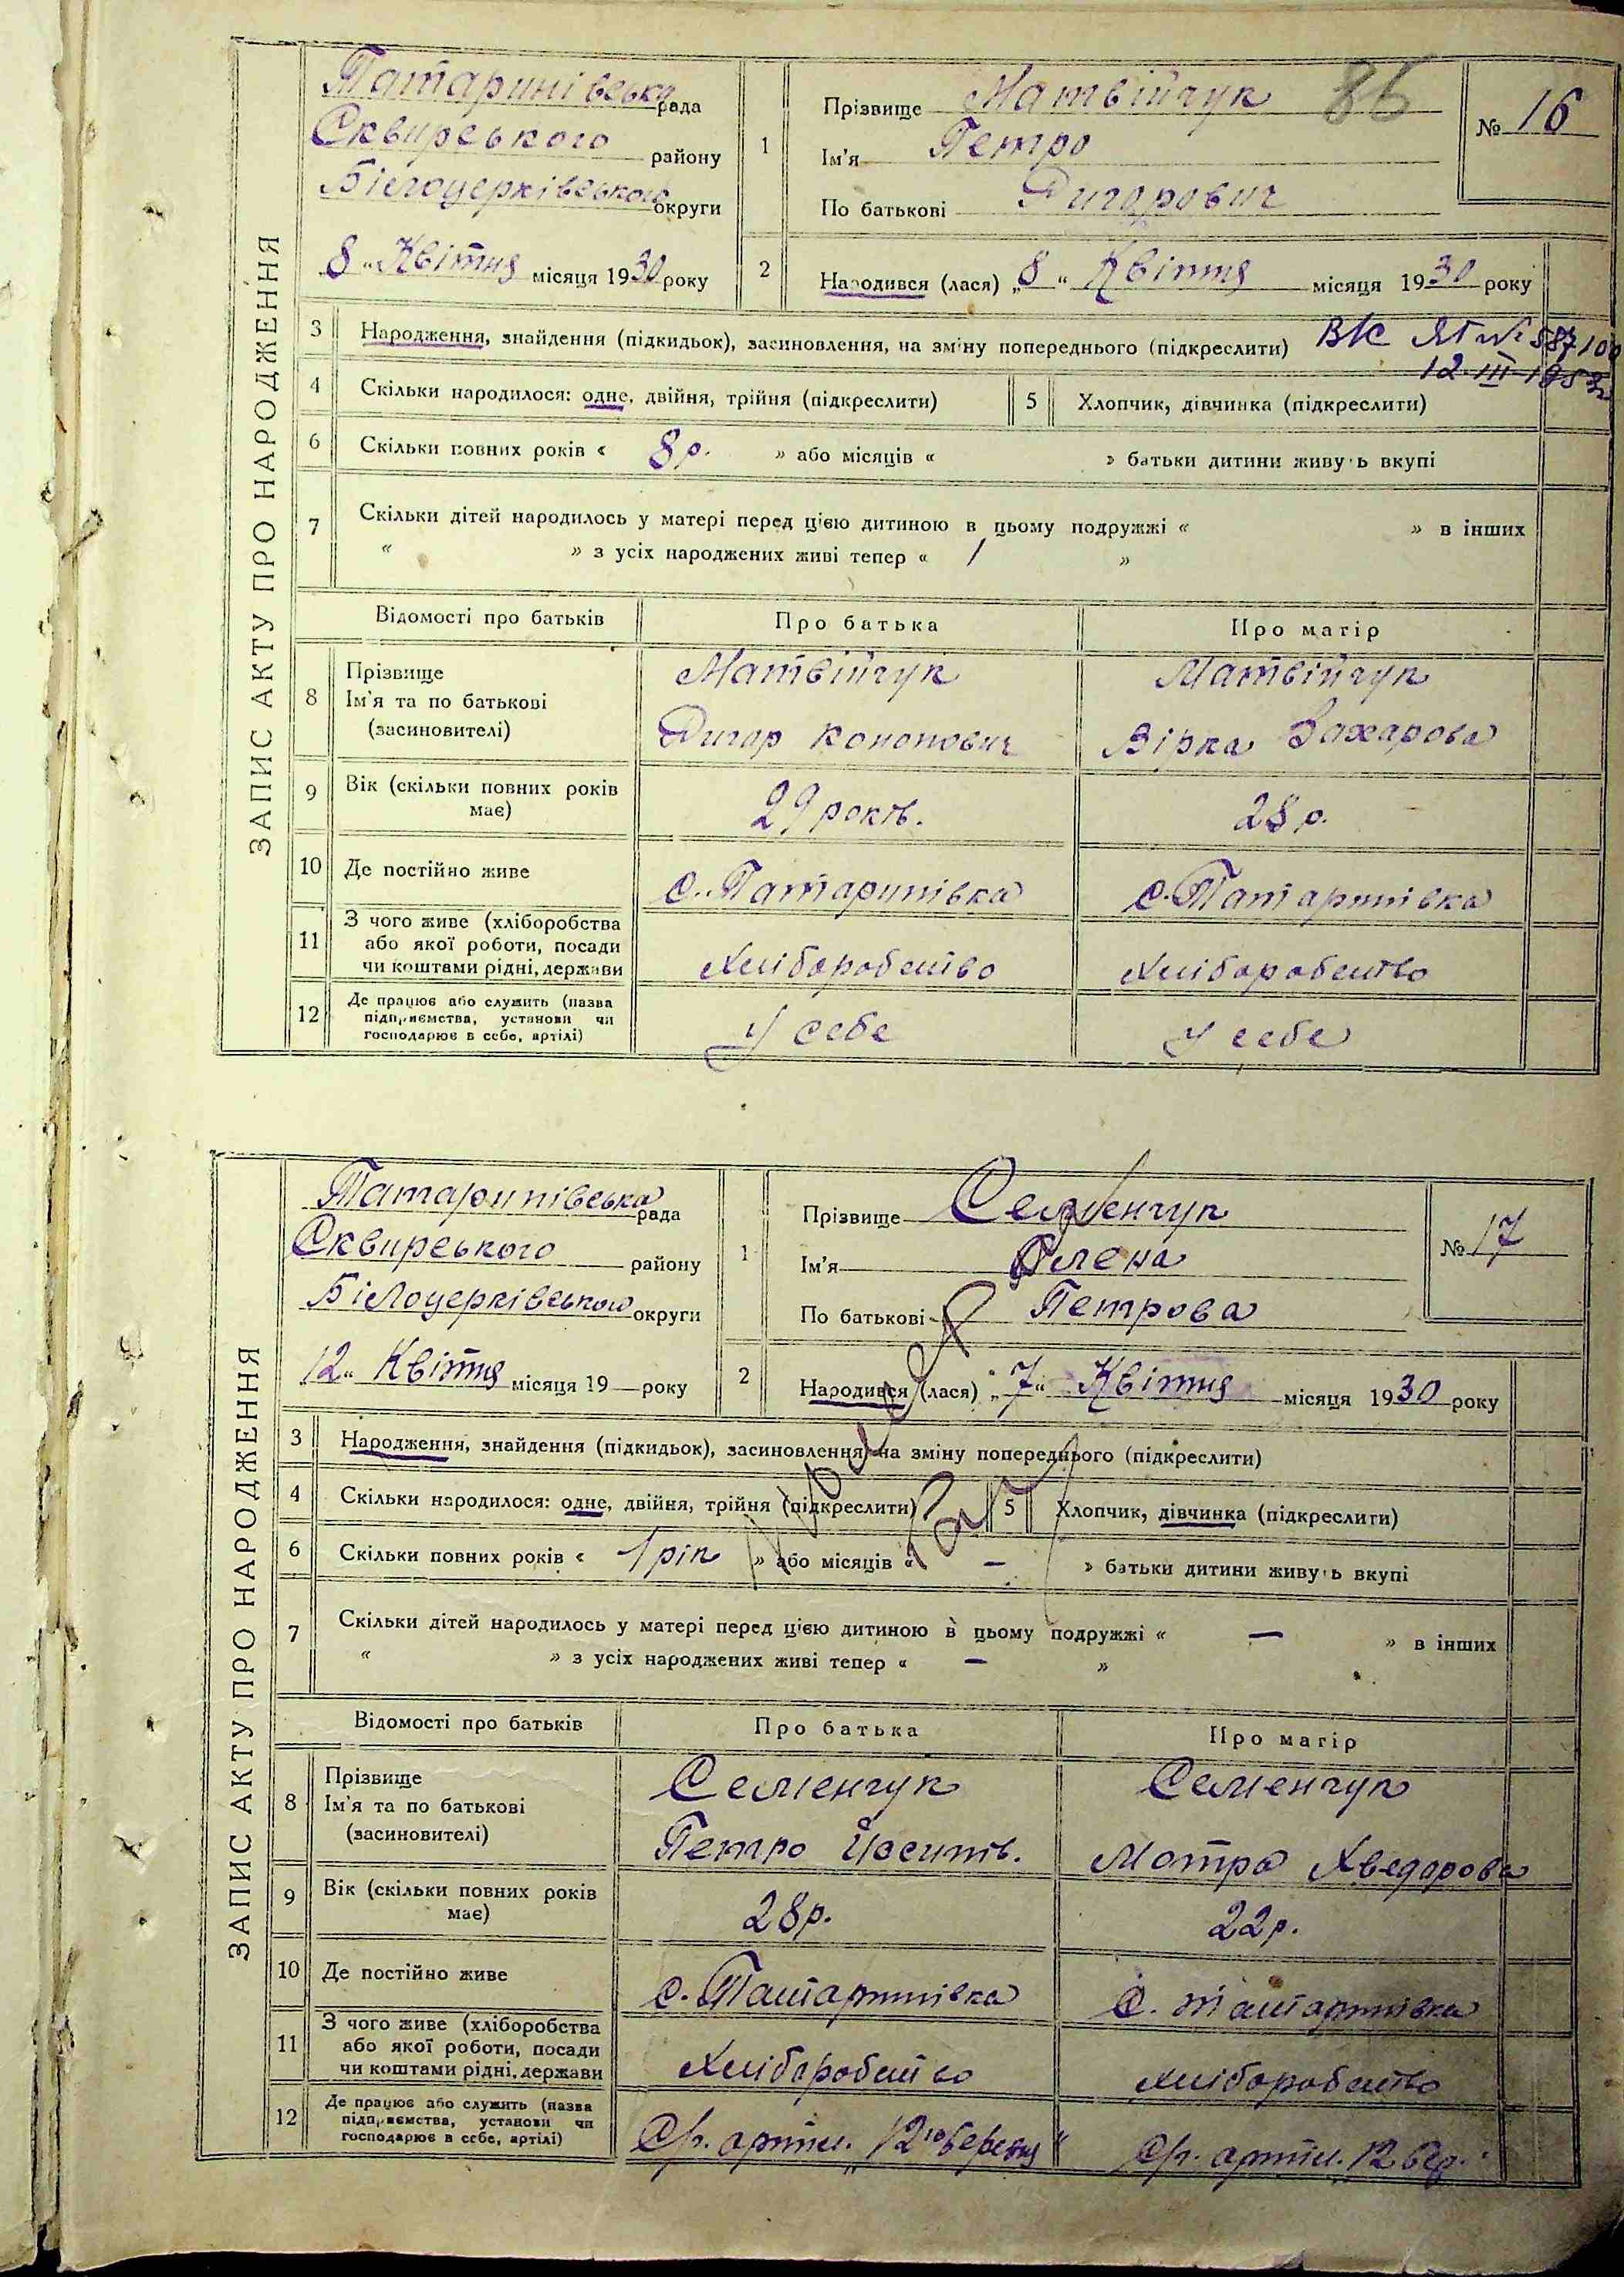 ЗАПИС АКТУ ПРО НАРОДЖЕННЯ
Татаринівська рада
Сквирського району
Білоцерківської округи
8 "Квітня місяця 1930 року
1
Прізвище Матвійчук
86
Ім'я Петро
По батькові Дигорович
№ 16
2
Народився (лася) „8" Квітня місяця 1930 року
3 Народження, знайдення (підкидьок), засиновлення, на зміну попереднього (підкреслити)
12-III-195
4 Скільки народилося: одне, двійня, трійня (підкреслити) 5 Хлопчик, дівчинка (підкреслити)
6 Скільки повних років « 8 р. » або місяців « » батьки дитини живуть вкупі
7 Скільки дітей народилось у матері перед цією дитиною в цьому подружжі « » в інших
« » з усіх народжених живі тепер « 1 »
Відомості про батьків Про батька Про матір
8 Прізвище Матвійчук Матвійчук
Ім'я та по батькові
(засиновителі) Дигор Кононович Вірка Захарова
9 Вік (скільки повних років
має) 29 років. 28 р.
10 Де постійно живе с. Татаринівка с. Татаринівка
11 З чого живе (хліборобства
або якої роботи, посади
чи коштами рідні, держави Хліборобство Хліборобство
12 Де працює або служить (назва
підприємства, установи чи
господарює в себе, артілі) У себе У себе
ЗАПИС АКТУ ПРО НАРОДЖЕННЯ
Татаринівська рада
Сквирського району
Білоцерківської округи
12" Квітня місяця 19 — року
1
Прізвище Семенчук
Ім'я Олена
По батькові Петрова
№ 17
2
Народився (лася) „7" Квітня місяця 1930 року
3 Народження, знайдення (підкидьок), засиновлення, на зміну попереднього (підкреслити)
4 Скільки народилося: одне, двійня, трійня (підкреслити) 5 Хлопчик, дівчинка (підкреслити)
6 Скільки повних років « 1 рік » або місяців « — » батьки дитини живуть вкупі
7 Скільки дітей народилось у матері перед цією дитиною в цьому подружжі « — » в інших
« » з усіх народжених живі тепер « — »
Відомості про батьків Про батька Про матір
8 Прізвище Семенчук Семенчук
Ім'я та по батькові
(засиновителі) Петро Йосипів. Мотра Хведорова
9 Вік (скільки повних років
має) 28 р. 22 р.
10 Де постійно живе с. Татаринівка с. Татаринівка
11 З чого живе (хліборобства
або якої роботи, посади
чи коштами рідні, держави Хліборобство хліборобство
12 Де працює або служить (назва
підприємства, установи чи
господарює в себе, артілі) С/г. артіл. „12го березня" С/г. артіл. „12 бер."